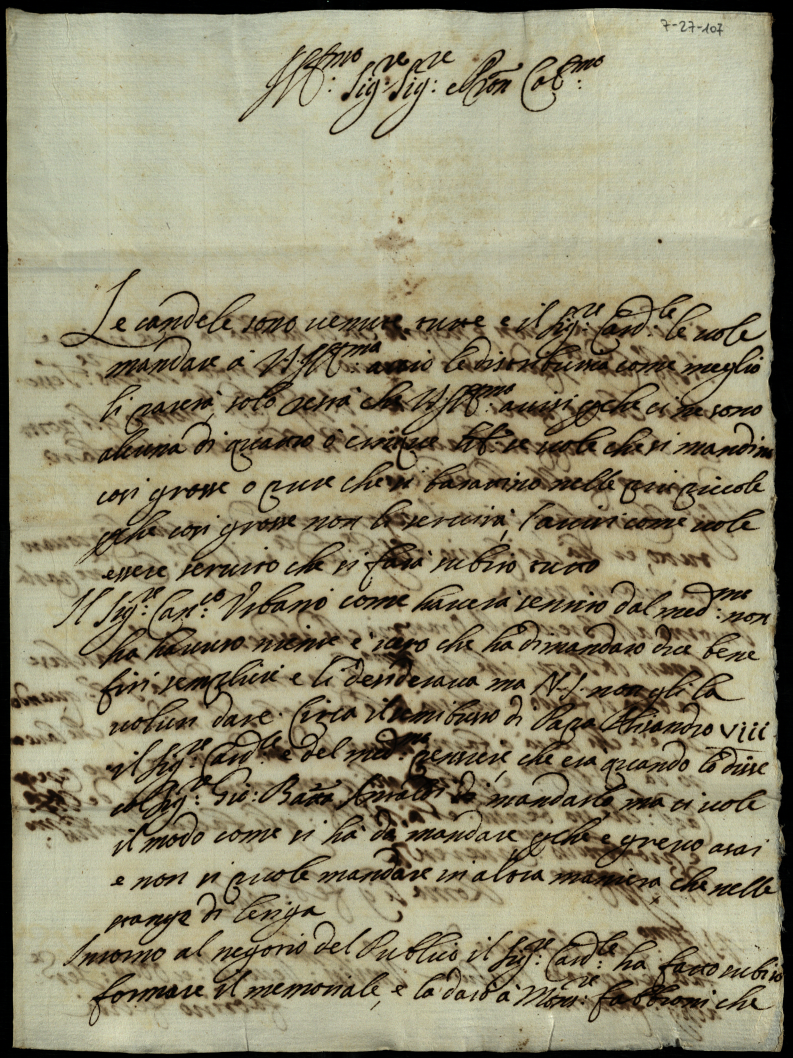 7-27-107
Ill.mo Sig.re Sig.re e Pron Col.mo
Le candele sono venute tutte e il Sig.re Card.le le vole
mandare à V.S. Ill.ma acciò le distribuisca come meglio
li parerà, solo resta che V.S. Ill.ma avisi pche ci ne sono
alcuna di quatro ò cinque lib.e se vole che si mandino
cosi grosse o pure che si barattino nelle piu piccole
pche cosi grosse non li servirà, l'avisi come vole
essere servito che si farà subito tutto
Il Sig.re Can.co Urbano come haverà sentito dal med.mo non
ha havuto niente è vero che ha dimandato due bene
fici semplici e li desiderava ma N.S. non gli la
voluti dare. Circa il di Papa Alisandro VIII
il Sig.re Card.le è del med.mo pensiere, che era quando lo disse
al Sig.re Gio: Batta di mandarlo ma ci vole
il modo come si ha da mandare pche e greve asai
e non si puole mandare in altra maniera che nelle
stange di letiga
Intorno al negotio del Publico il Sig.re Card.le ha fatto subito
formare il memoriale, e la dato à Mons.re Fabbroni che